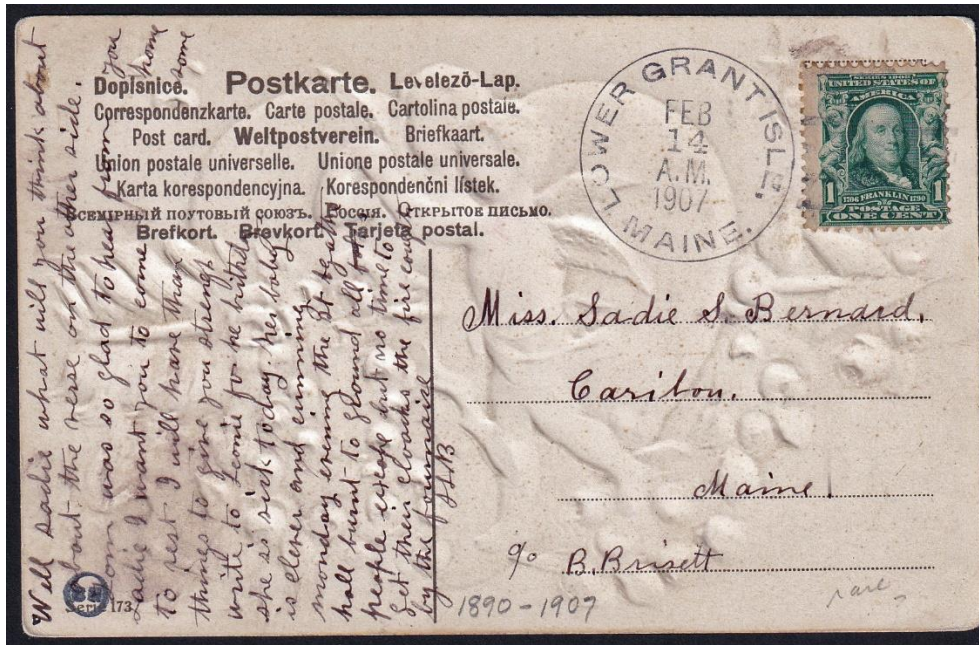 Dopisnice. Postkarte. Levelező-Lap.
Correspondenzkarte. Carte postale. Cartolina postale.
Post card. Weltpostverein. Briefkaart.
Union postale universelle. Unione postale universale.
Karta korespondencyjna. Korespondenční lístek.
ВСЕМІРНЫЙ ПОЧТОВЫЙ СОЮЗЪ. РОССІЯ. ОТКРЫТОЕ ПИСЬМО.
Brefkort. Brevkort. Tarjeta postal.
LOWER GRANT ISLE, MAINE.
FEB
14
A.M.
1907
SERIES 1902
UNITED STATES OF
AMERICA
1 1
1706 FRANKLIN 1790
POSTAGE
ONE CENT
Miss. Sadie S. Bernard,
Caribou.
Maine.
c/o B. Brisett
Well sadie what will you think about
about the verse on the other side.
was so glad to hear from you
sadie I want you to come home
to rest I will have than some
things to give you strengt
write to Lonie for he
she is sick today her baby
is clever and cunning
monday evning the St
hall burnt to ground all
people escape but no time to
get their cloaks the fire caught
by the fournaise
1890-1907
rare
Serie 173